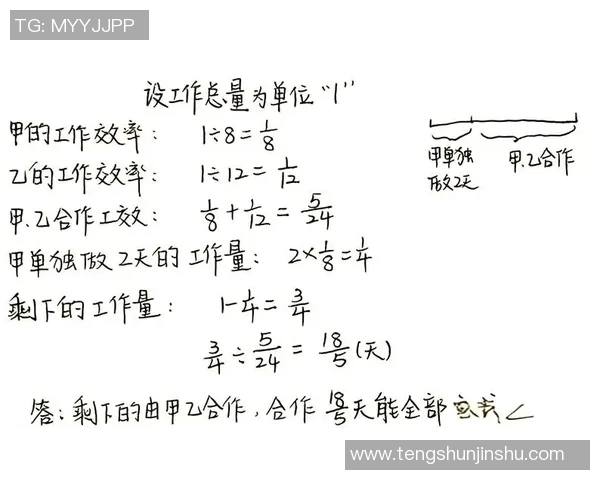 TG: MYYJJPP
设工作总量为单位“1”
甲的工作效率: 1÷8=1/8
乙的工作效率: 1÷12=1/12
甲.乙合作工效: 1/8+1/12=5/24
甲单独做2天的工作量: 2×1/8=1/4
剩下的工作量: 1-1/4=3/4
3/4÷5/24=18/5(天)
答:剩下的由甲乙合作,合作18/5天能全部
甲单独 甲.乙合作
做2天
www.tengshunjinshu.com